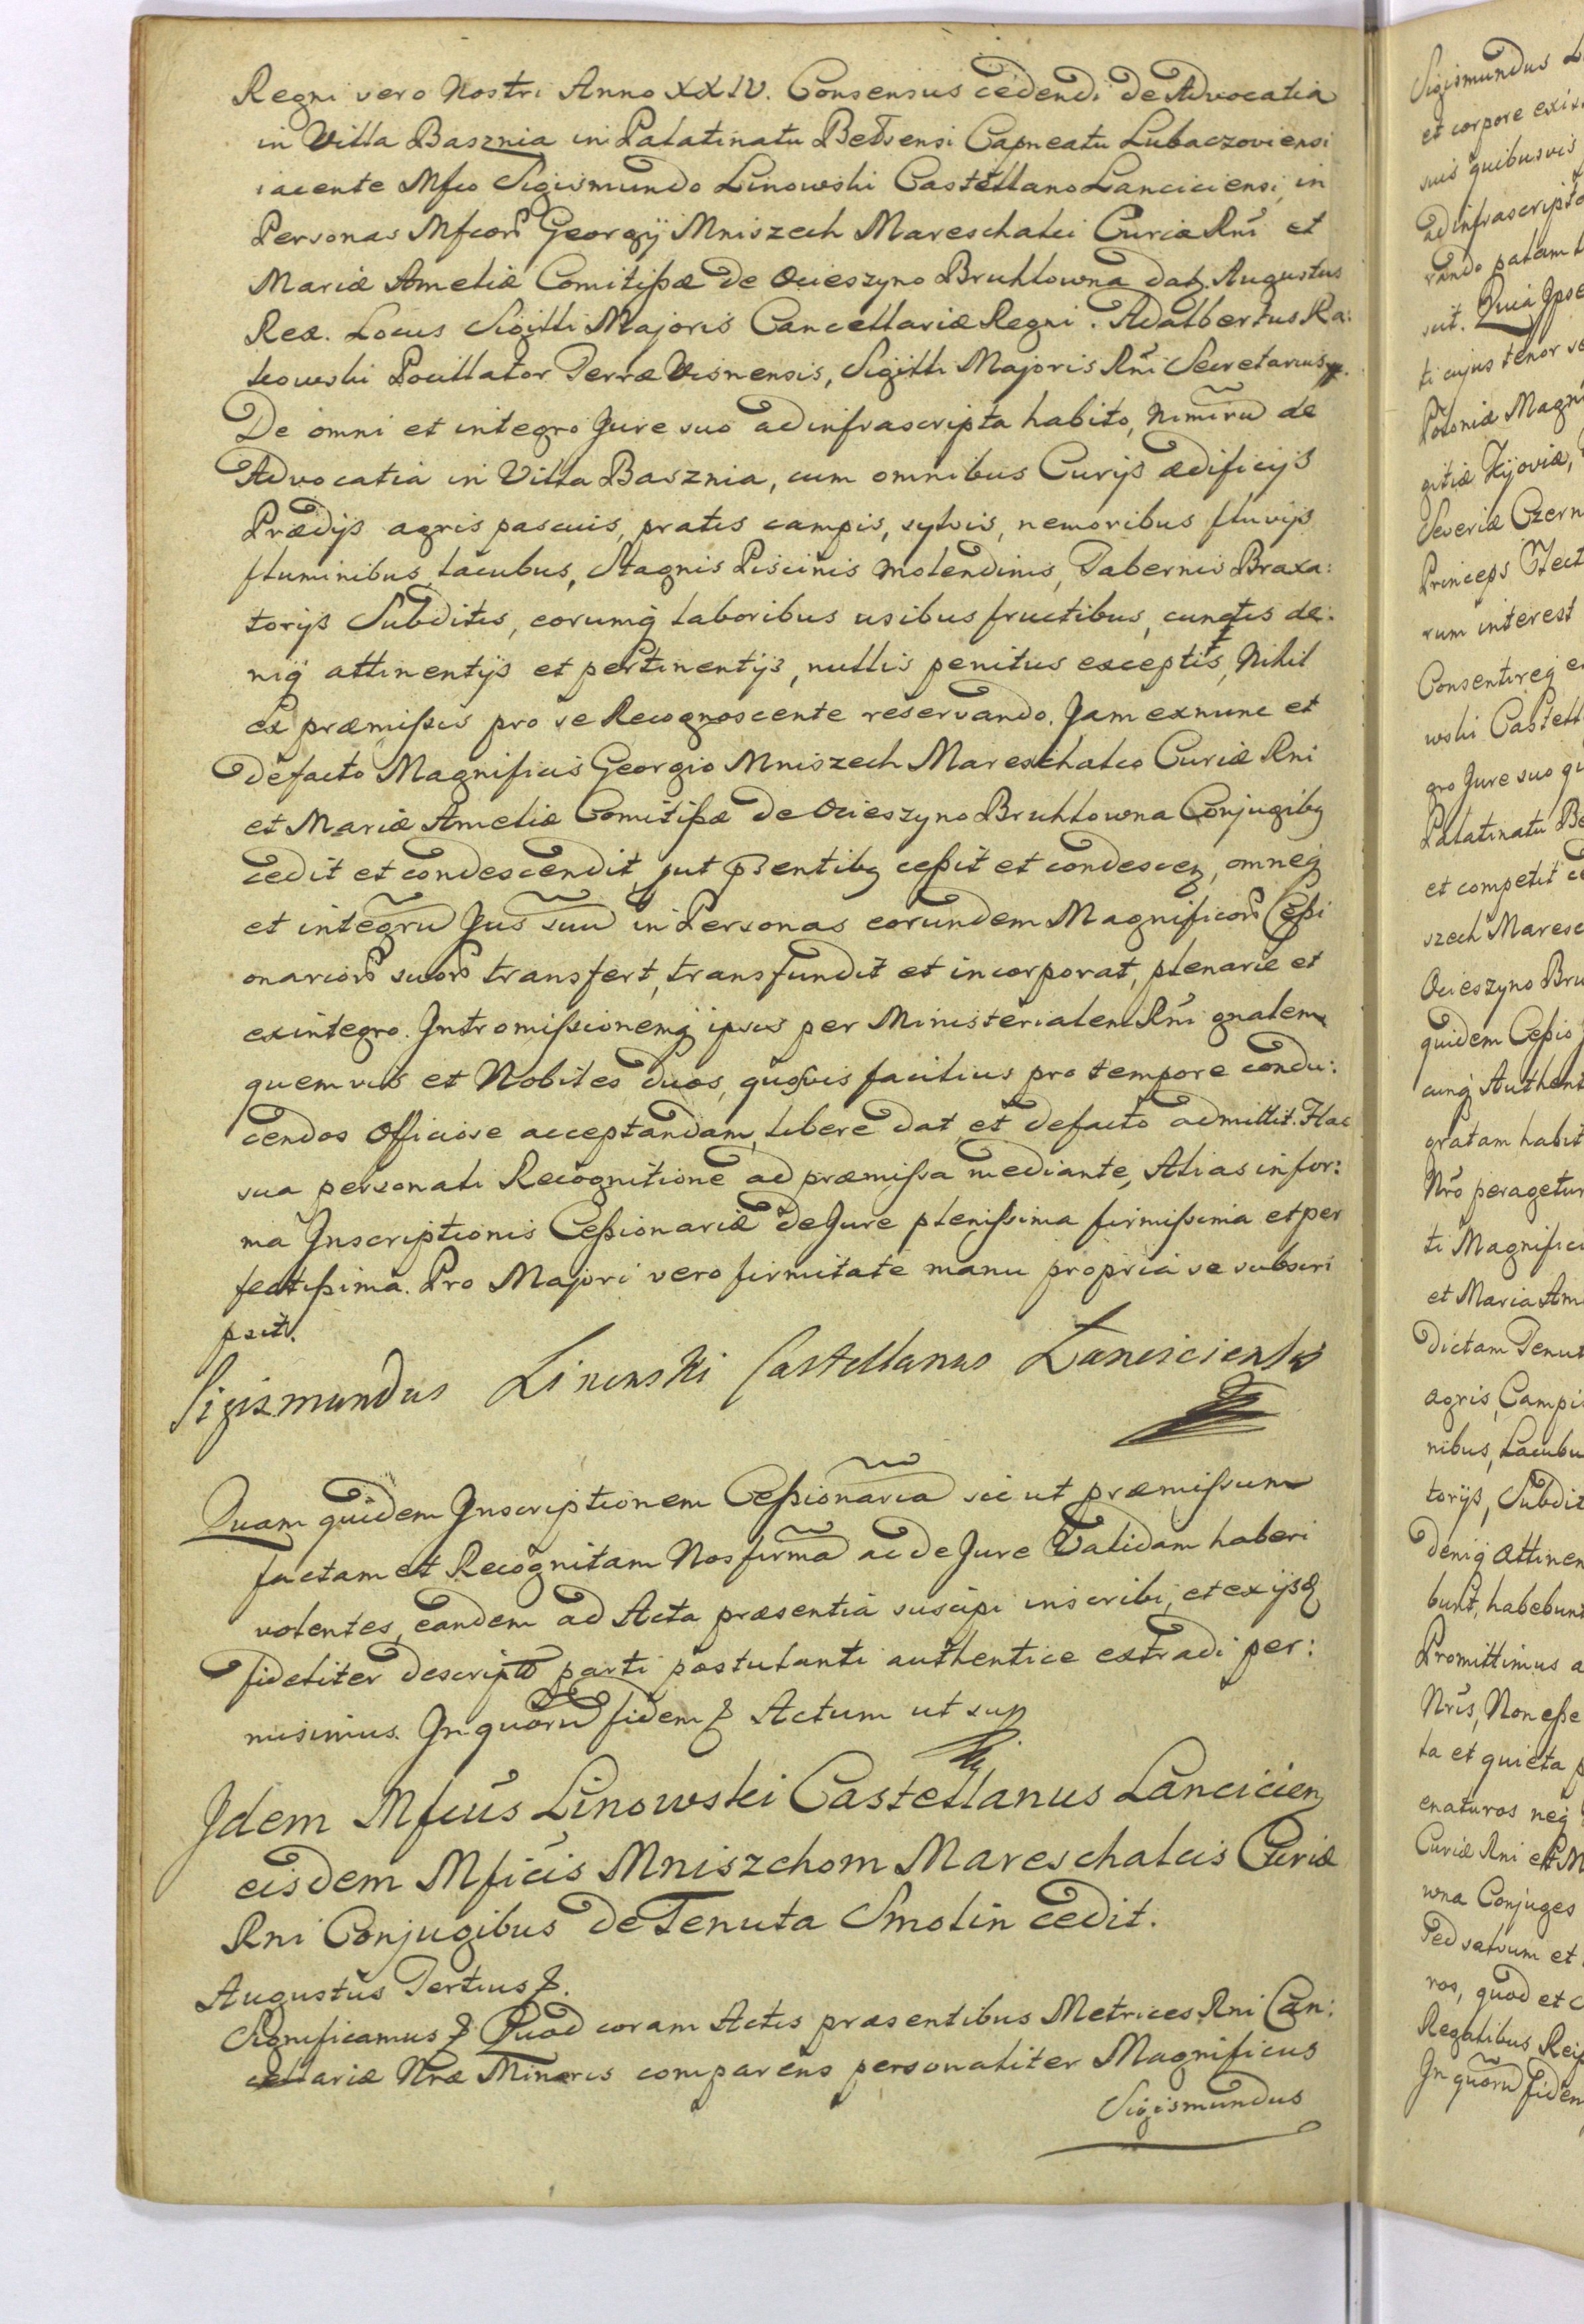 Regni vero Nostri Anno XXIV. Consensus cedendi de Advocatia
in Villa Basznia in Palatinatu Belsensi Capneatu Lubaczoviensi
iacente Mfco Sigismundo Linowski Castellano Lanciciensi, in
Personas Mfcor Georgij Mniszech Mareschalci Curiæ Rni et
Mariæ Ameliæ Comitißæ de Ocieszyno Bruhlowna datq Augustus
Rex. Locus Sigilli Majoris Cancellariæ Regni. Adalbertus Ra:
kowski Pocillator Terræ Visnensis, Sigilli Majoris Rni Secretarius.
De omni et integro Jure suo ad infrascripta habito, Nimirũ de
Advocatia in Villa Basznia, cum omnibus Curijs ædificijs
Prædijs agris pascuis, pratis campis, sylvis, nemoribus fluvijs
fluminibus, lacubus, Stagnis Piscinis molendinis, Tabernis Braxa:
torijs Subditis, eorumq laboribus usibus fructibus, cunctis de:
niq attinentijs et pertinentijs, nullis penitus exceptis, Nihil
ex præmißis pro se Recognoscente reservando. Jam exnunc et
defacto Magnificis Georgio Mniszech Mareschalco Curiæ Rni
et Mariæ Ameliæ Comitißæ de Ocieszyno Bruhlowna Conjugibq
cedit et condescendit, put pñtibq ceßit et condescq, omneq
et integrũ Jus suũ in Personas eorundem Magnificor Ceßi
onarior suor transfert, transfundit et incorporat, plenarie et
exintegro. Intromißionemq ipsis per Ministerialem Rni gnalem
quemvis et Nobiles duos, quosvis facilius pro tempore condu:
cendos officiose acceptandam, libere dat, et defacto admittit. Hac
sua personali Recognitione ad præmißa mediante, Alias in for:
ma Inscriptionis Ceßionariæ de Jure plenißima firmißima et per
fectißima. Pro Majori vero firmitate manu propria se subscri
psit.
Sigismundus Linowski Castellanus Lanciciensis
Quam quidem Inscriptionem Ceßionariã sic ut præmißum
factam et Recognitam Nos firmã ac de Jure Validam haberi
volentes, eandem ad Acta præsentia suscipi inscribi, et ex ijsq
fideliter descripto parti postulanti authentice extradi per:
misimus. In quorũ fidem & Actum ut sup
Idem Mfcus Linowski Castellanus Lancicien
eisdem Mficis Mniszchom Mareschalcis Curiæ
Rni Conjugibus de Tenuta Smolin cedit.
Augustus Tertius &.
Significamus & Quod coram Actis præsentibus Metrices Rni Can:
cellariæ Nræ Minoris comparens personaliter Magnificus
Sigismundus
Sigismundus
et corpore exis
suis quibusvis
ad infrascripto
rando palam
uit. Quia Ipse
ti cujus tenor
Poloniæ Magn
gitiæ Kijoviæ,
Severiæ Czern
Princeps Elect
rum interest
Consentireq
wski Castell
gro Jure suo
Palatinatu Be
et competit
szech Maresc
Ocieszyno Bru
quidem Ceßio
cunq Authent
gratam habit
Nro peragetur
ti Magnifici
et Maria Am
dictam Tenut
agris, Campi
nibus, Lacubu
torijs, Subdit
deniq attinen
bunt, habebunt
Promittimus a
Nris, Non eße
ta et quieta p
enaturos neq
Curiæ Rni et M
wna Conjuges
Sed salvum et
ros, quod et
Regalibus Reip
In quorũ fidem